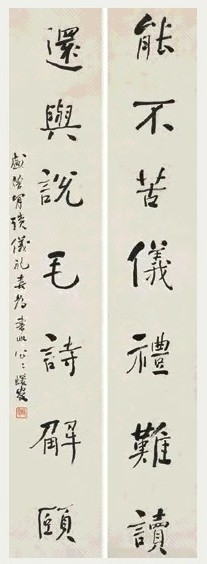 能不苦儀禮難讀
還與說毛詩解頤